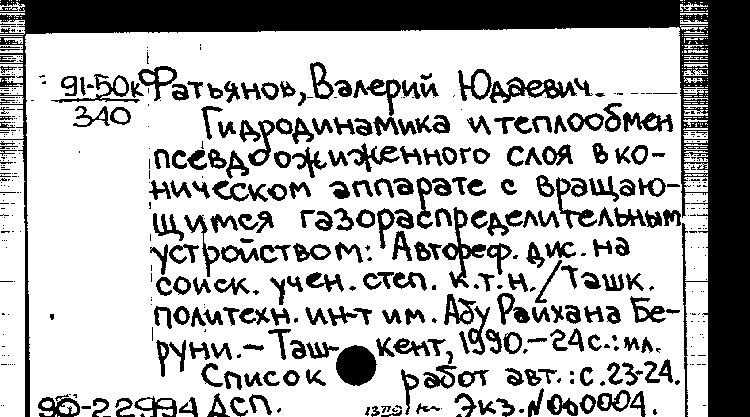 91-50к Фатьянов, Валерий Юдаевич.
340
Гидродинамика и теплообмен
псевдоожиженного слоя в ко-
ническом аппарате с вращаю-
щимся газораспределительным
устройством: Автореф. дис. на
соиск. учен. степ. к.т.н. / Ташк.
политехн. ин-т им. Абу Райхана Бе-
руни. - Таш- кент, 1990. - 24 с.: ил.
Список работ авт.: с. 23-24.
90-22994 ДСП. Экз. № 00004.